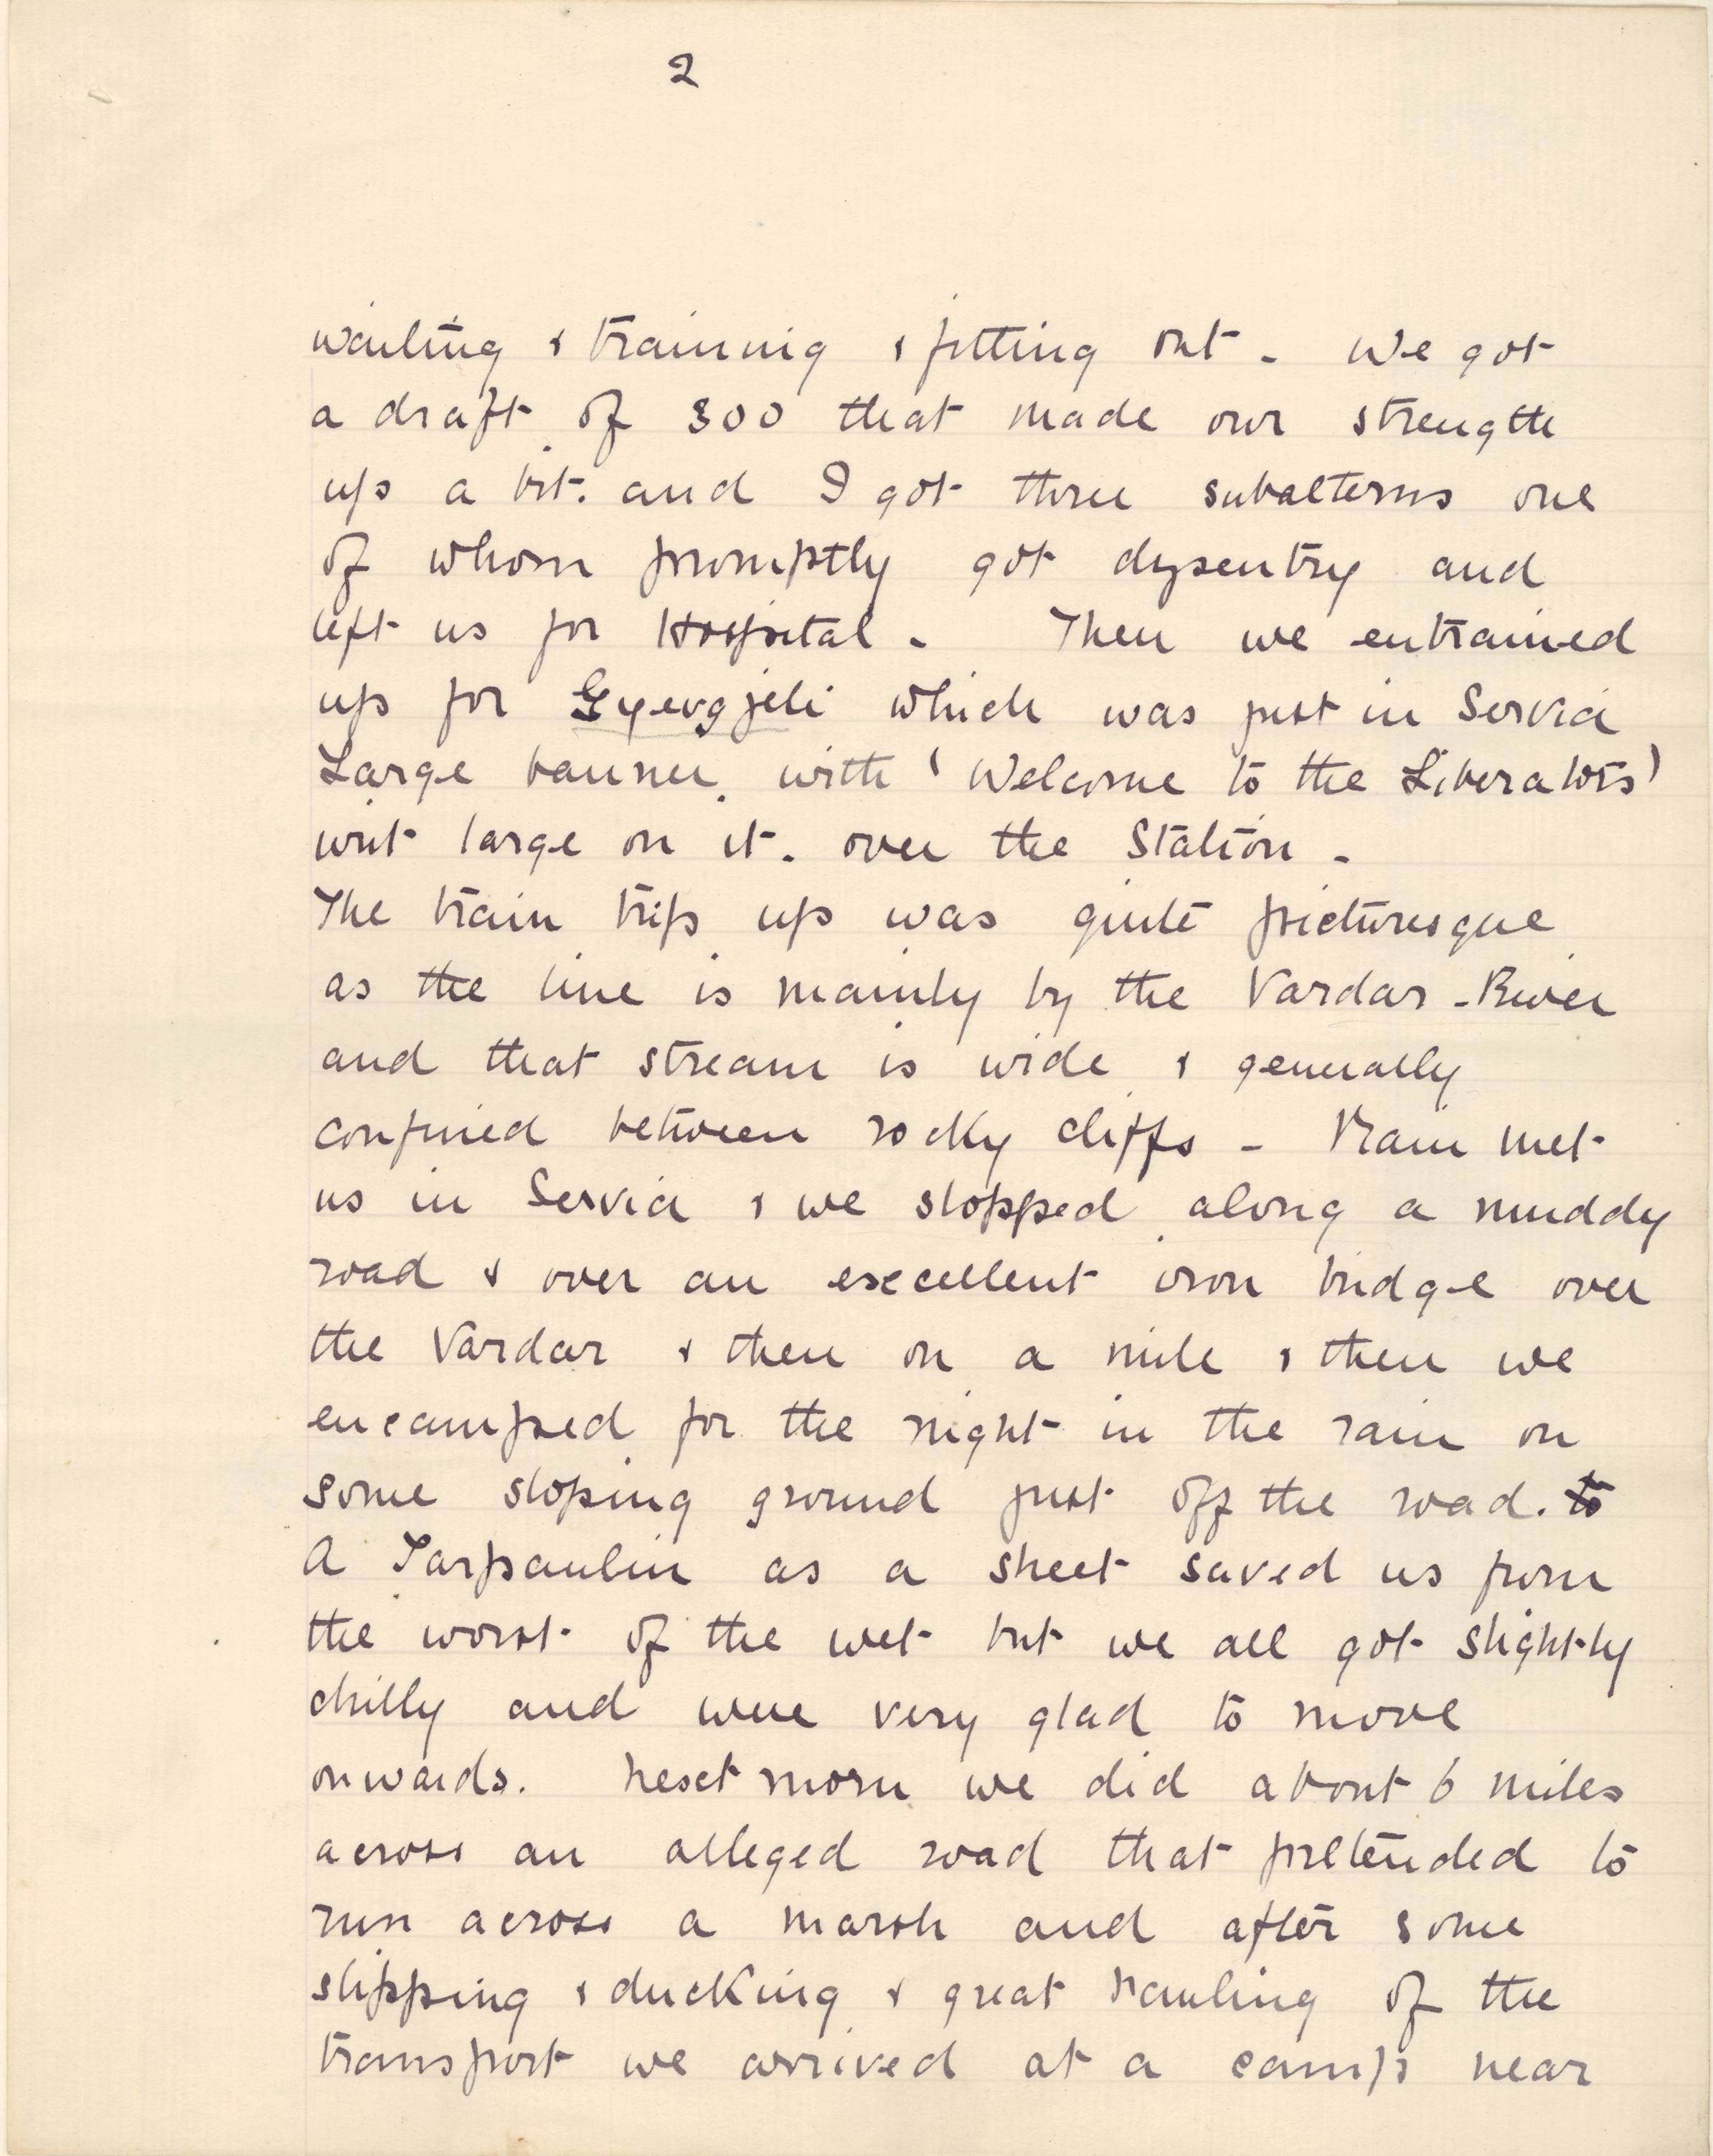 2
waiting & training & fitting out - We got
a draft of 300 that made our strength
up a bit. and I got three subalterns one
of whom promptly got dysentry and
left us for Hospital - Then we entrained
up for Gyevgjeli which was just in Servia
Large banner with 'Welcome to the Liberators'
writ large on it. over the Station -
The train trip up was quite picturesque
as the line is mainly by the Vardar - River
and that stream is wide & generally
confined between rocky cliffs - Rain met
us in Servia & we slopped along a muddy
road & over an excellent iron bridge over
the Vardar & then on a mile & then we
encamped for the night in the rain on
some sloping ground just off the road. to
A Tarpaulin as a sheet saved us from
the worst of the wet but we all got slightly
chilly and were very glad to move
onwards. Next morn we did about 6 miles
across an alleged road that pretended to
run across a marsh and after some
slipping & ducking & great hauling of the
transport we arrived at a camp near